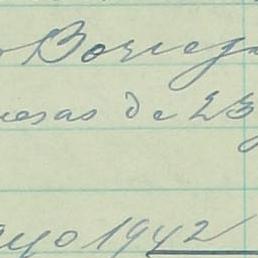 Borreg
esas de 23
ayo 1942